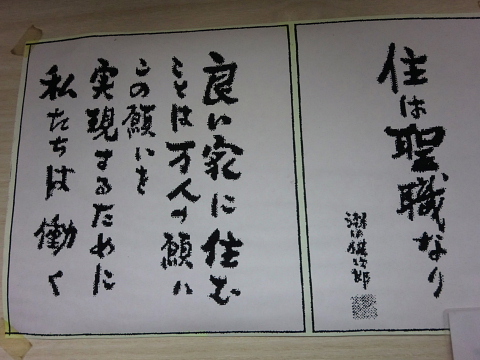 住は聖職なり
良い家に住む
ことは万人の願い
この願いを
実現するために
私たちは働く